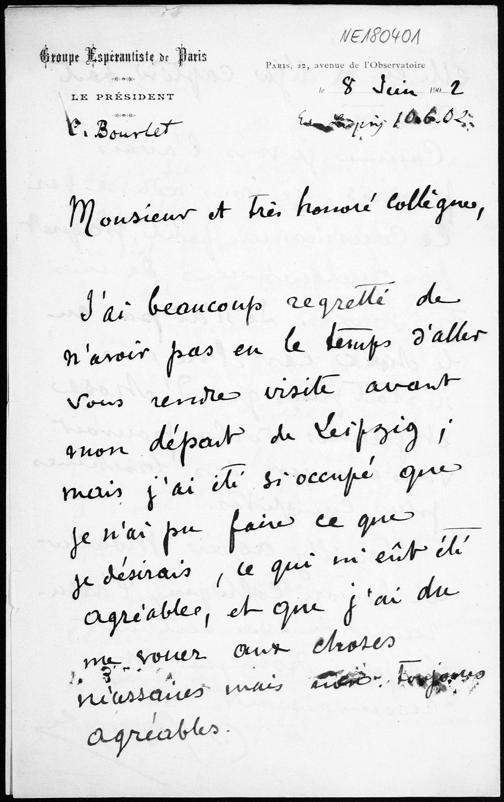 NE180401
Groupe Espérantiste de Paris
LE PRÉSIDENT
C. Bourlet
PARIS, 22, avenue de l'Observatoire
le 8 Juin 1902
10.6.02.
Monsieur et très honoré Collègue,
J'ai beaucoup regretté de
n'avoir pas eu le temps d'aller
vous rendre visite avant
mon départ de Leipzig ;
mais j'ai été si occupé que
je n'ai pu faire ce que
je désirais, ce qui m'eût été
agréable, et que j'ai du
me vouer aux choses
nécessaires mais toujours
agréables.